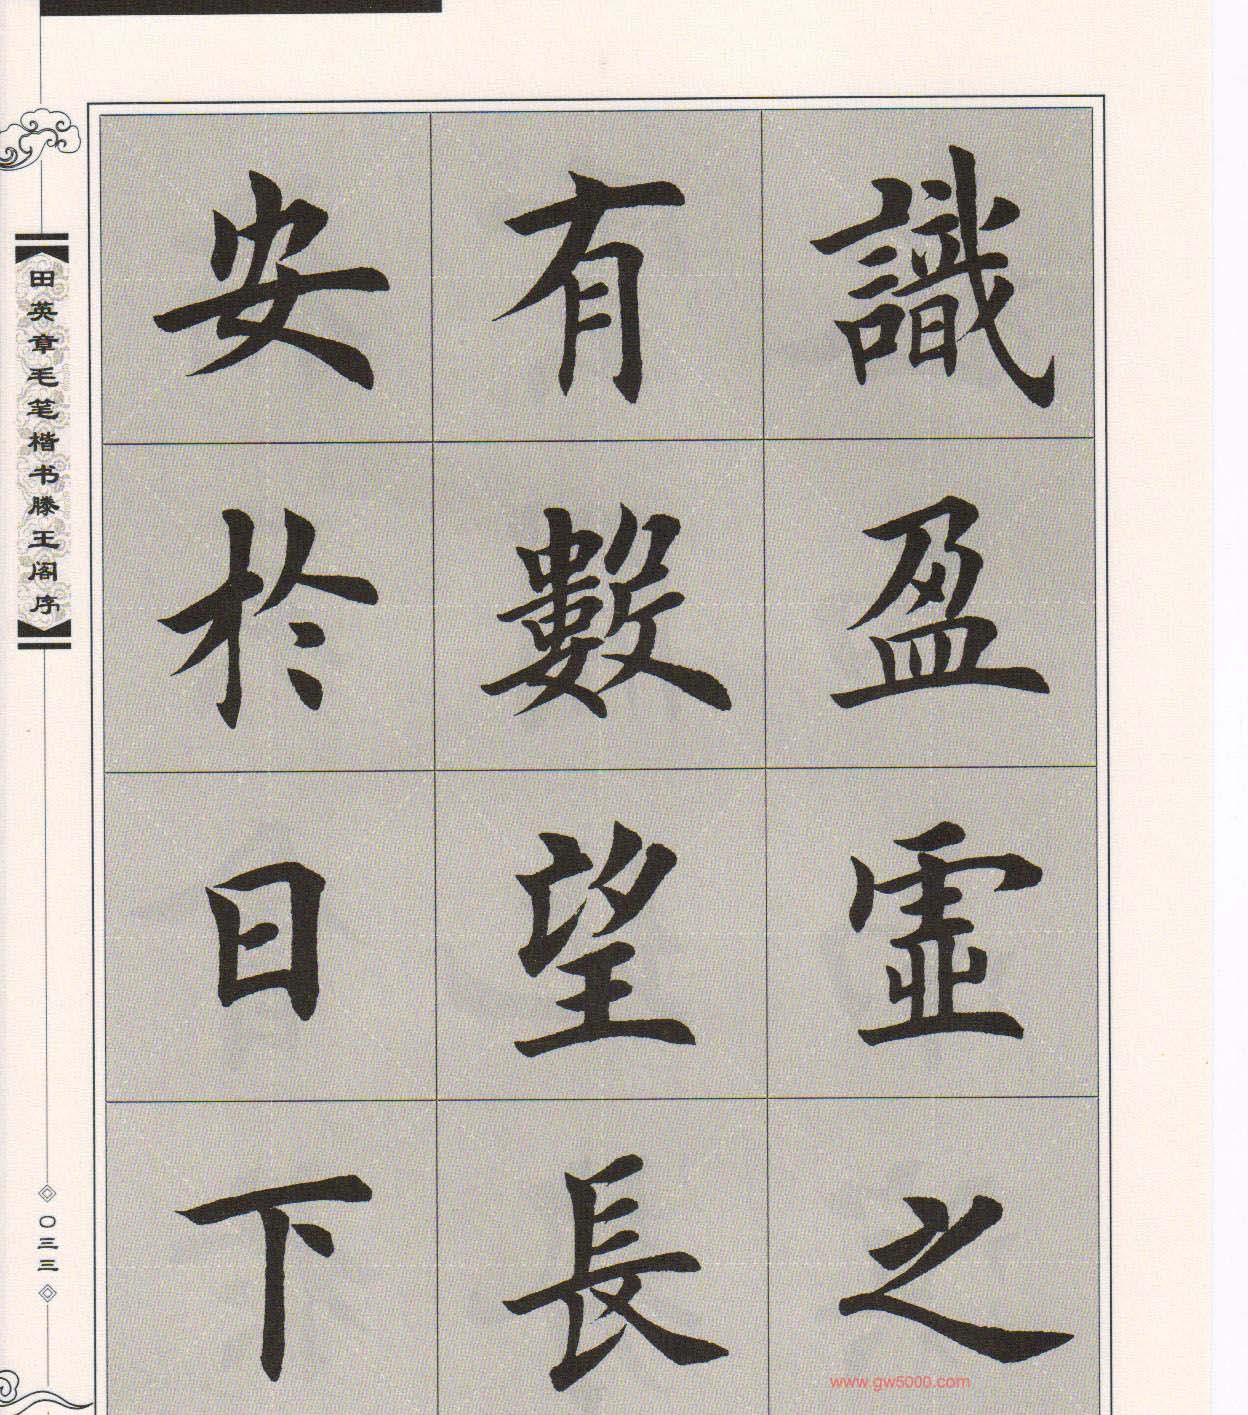 識盈虛之
有數望長
安於日下
田英章毛笔楷书滕王阁序
〇三三
www.gw5000.com